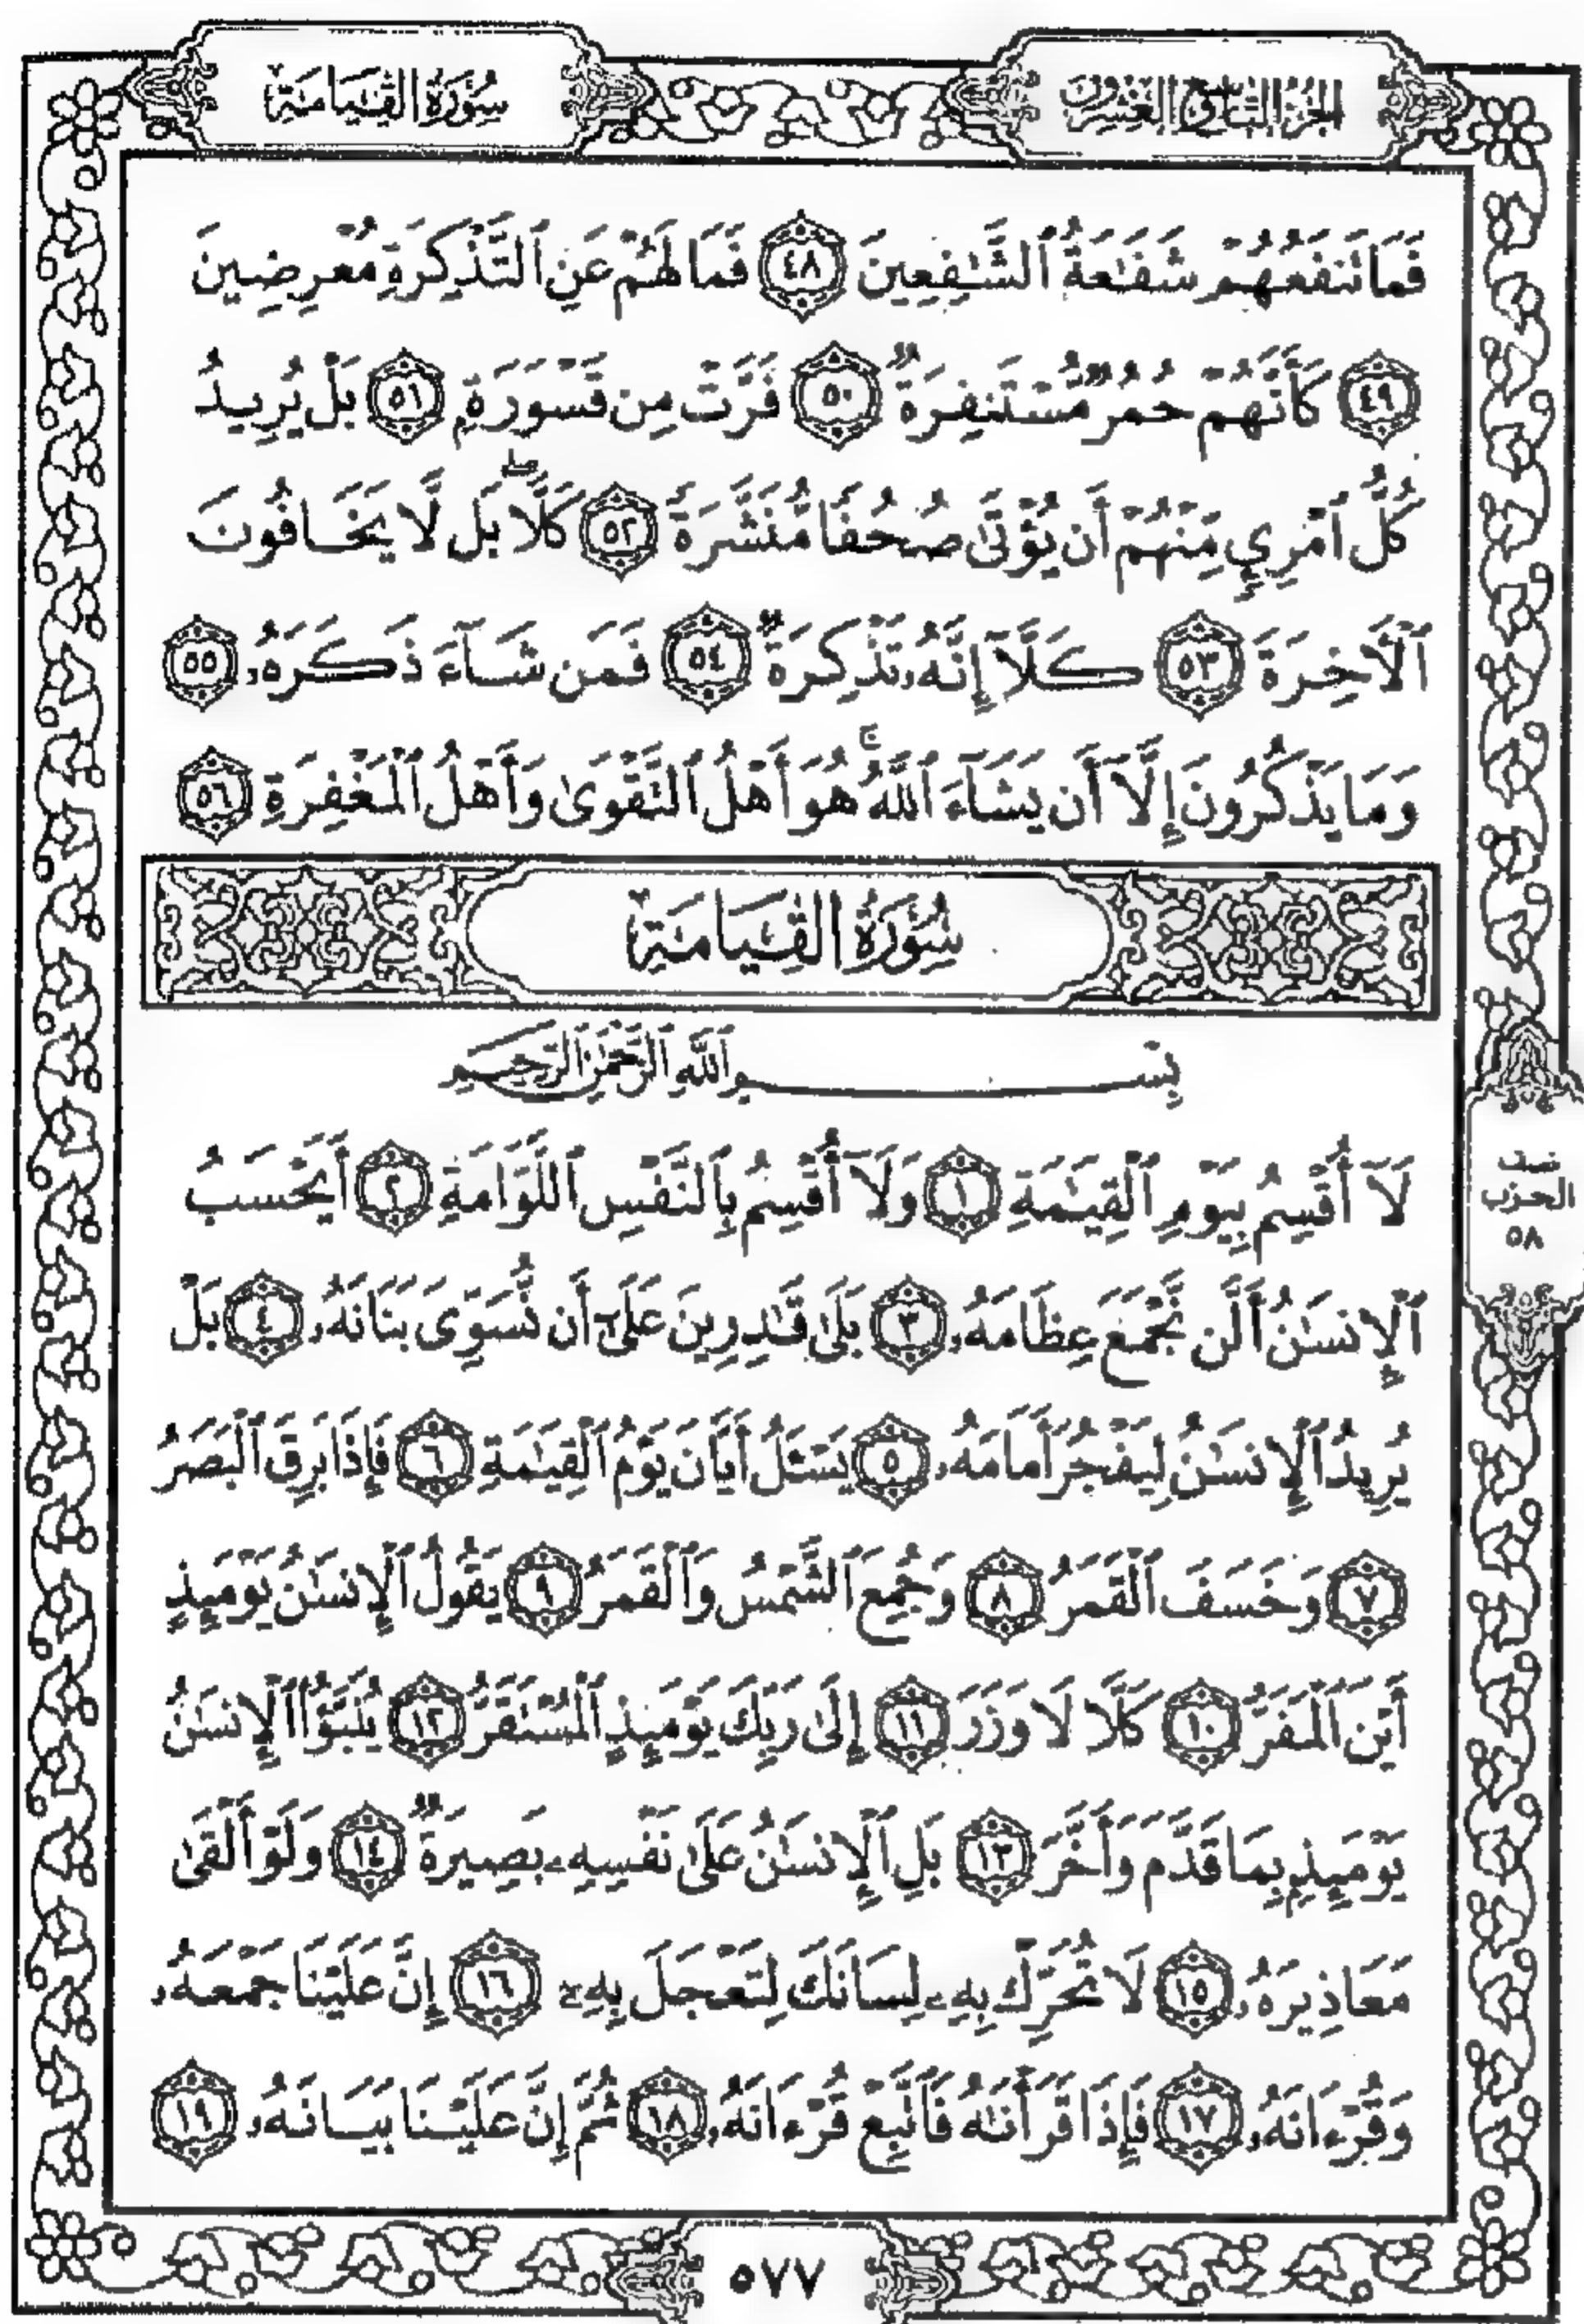 الجزء التاسع والعشرون
سُورَةُ القِيَامَةِ
فَمَا تَنفَعُهُمْ شَفَٰعَةُ ٱلشَّٰفِعِينَ ٤٨ فَمَا لَهُمْ عَنِ ٱلتَّذْكِرَةِ مُعْرِضِينَ
٤٩ كَأَنَّهُمْ حُمُرٌ مُّسْتَنفِرَةٌ ٥٠ فَرَّتْ مِن قَسْوَرَةٍ ٥١ بَلْ يُرِيدُ
كُلُّ ٱمْرِئٍ مِّنْهُمْ أَن يُؤْتَىٰ صُحُفًا مُّنَشَّرَةً ٥٢ كَلَّا ۖ بَل لَّا يَخَافُونَ
ٱلْءَاخِرَةَ ٥٣ كَلَّآ إِنَّهُۥ تَذْكِرَةٌ ٥٤ فَمَن شَآءَ ذَكَرَهُۥ ٥٥
وَمَا يَذْكُرُونَ إِلَّآ أَن يَشَآءَ ٱللَّهُ ۚ هُوَ أَهْلُ ٱلتَّقْوَىٰ وَأَهْلُ ٱلْمَغْفِرَةِ ٥٦
سُورَةُ القِيَامَةِ
بِسْمِ ٱللَّهِ ٱلرَّحْمَٰنِ ٱلرَّحِيمِ
لَآ أُقْسِمُ بِيَوْمِ ٱلْقِيَٰمَةِ ١ وَلَآ أُقْسِمُ بِٱلنَّفْسِ ٱللَّوَّامَةِ ٢ أَيَحْسَبُ
ٱلْإِنسَٰنُ أَلَّن نَّجْمَعَ عِظَامَهُۥ ٣ بَلَىٰ قَٰدِرِينَ عَلَىٰٓ أَن نُّسَوِّىَ بَنَانَهُۥ ٤ بَلْ
يُرِيدُ ٱلْإِنسَٰنُ لِيَفْجُرَ أَمَامَهُۥ ٥ يَسْـَٔلُ أَيَّانَ يَوْمُ ٱلْقِيَٰمَةِ ٦ فَإِذَا بَرِقَ ٱلْبَصَرُ
٧ وَخَسَفَ ٱلْقَمَرُ ٨ وَجُمِعَ ٱلشَّمْسُ وَٱلْقَمَرُ ٩ يَقُولُ ٱلْإِنسَٰنُ يَوْمَئِذٍ
أَيْنَ ٱلْمَفَرُّ ١٠ كَلَّا لَا وَزَرَ ١١ إِلَىٰ رَبِّكَ يَوْمَئِذٍ ٱلْمُسْتَقَرُّ ١٢ يُنَبَّؤُا۟ ٱلْإِنسَٰنُ
يَوْمَئِذٍۭ بِمَا قَدَّمَ وَأَخَّرَ ١٣ بَلِ ٱلْإِنسَٰنُ عَلَىٰ نَفْسِهِۦ بَصِيرَةٌ ١٤ وَلَوْ أَلْقَىٰ
مَعَاذِيرَهُۥ ١٥ لَا تُحَرِّكْ بِهِۦ لِسَانَكَ لِتَعْجَلَ بِهِۦٓ ١٦ إِنَّ عَلَيْنَا جَمْعَهُۥ
وَقُرْءَانَهُۥ ١٧ فَإِذَا قَرَأْنَٰهُ فَٱتَّبِعْ قُرْءَانَهُۥ ١٨ ثُمَّ إِنَّ عَلَيْنَا بَيَانَهُۥ ١٩
نصف
الحزب
٥٨
٥٧٧